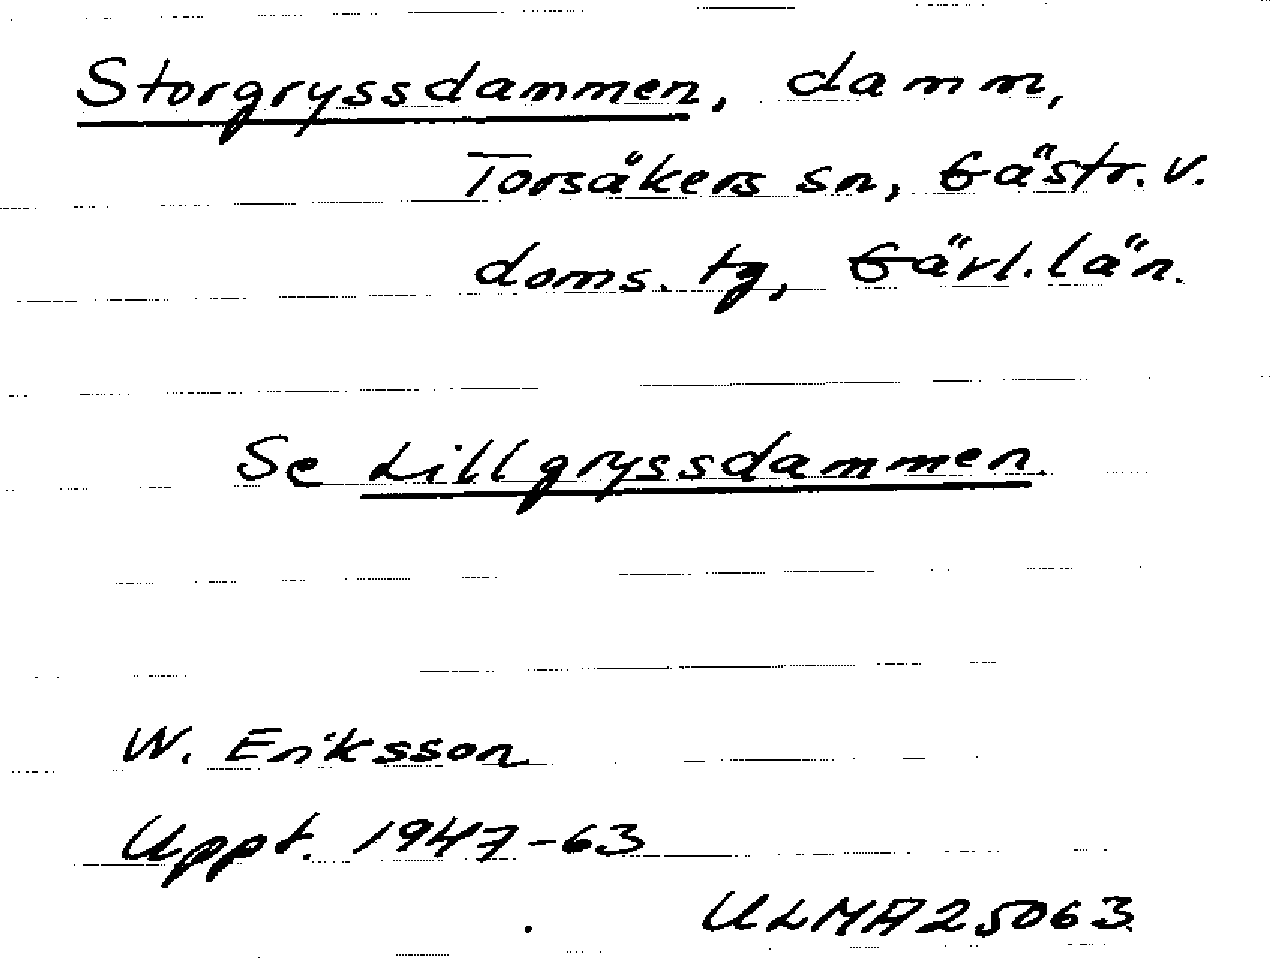 Storgryssdammen, damm,
Torsåkers sn, Gästr. v.
doms. tg, Gävl. län.
Se Lillgryssdammen.
W. Eriksson
Uppt. 1947-63
ULMA 25063